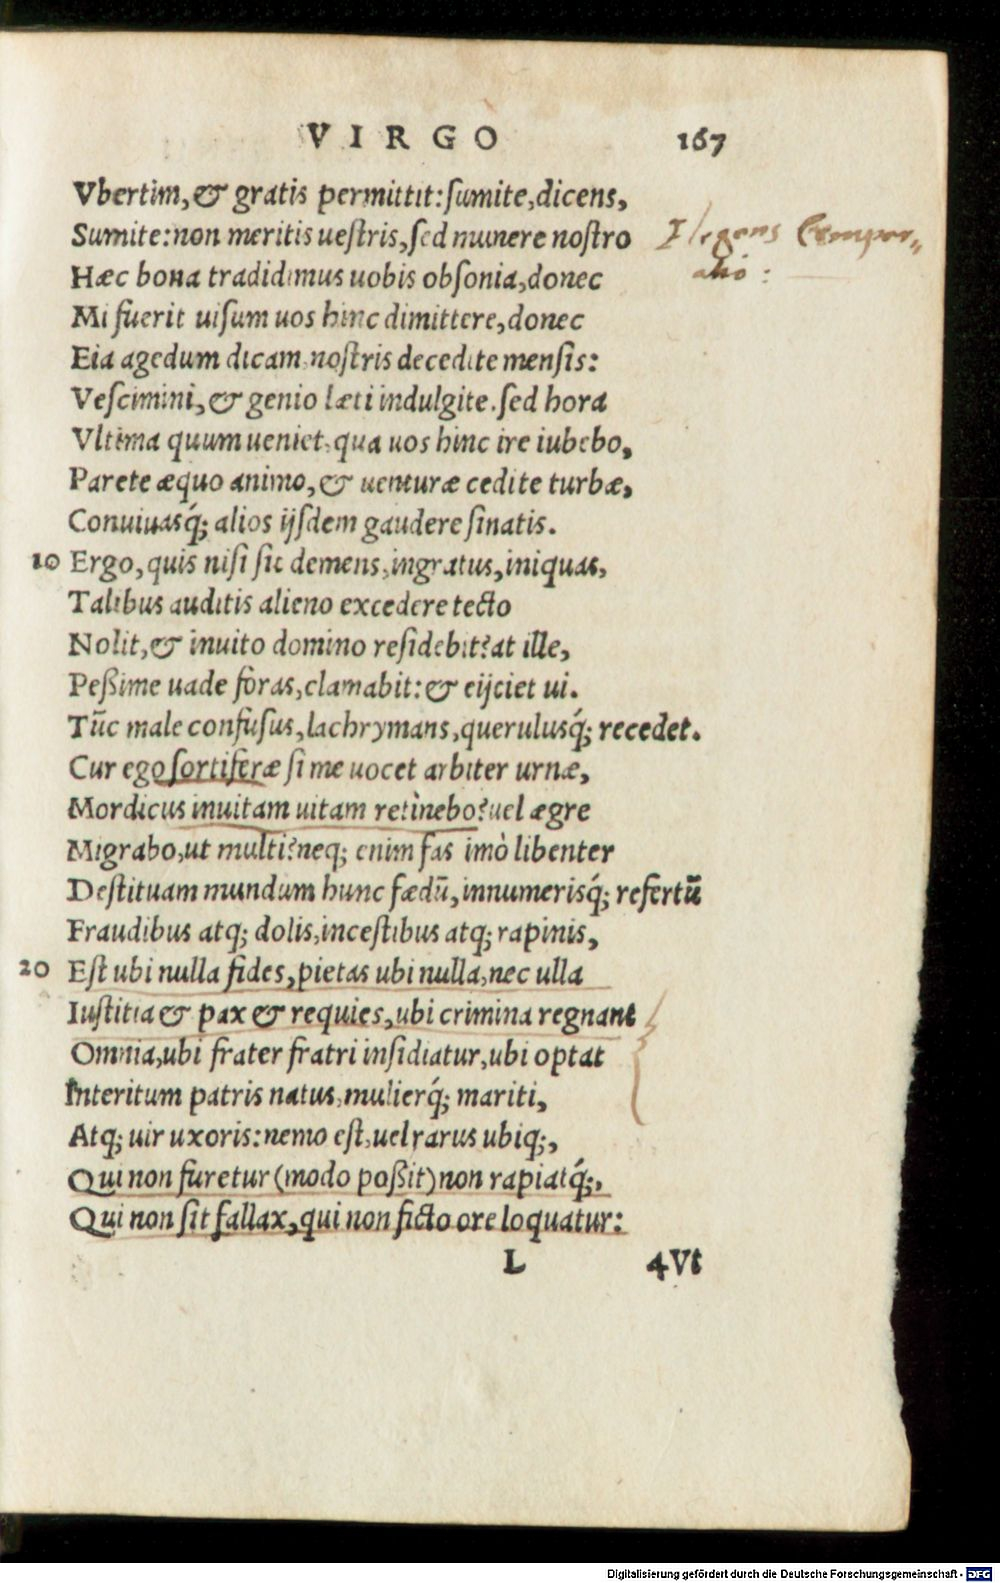 VIRGO 167
Vbertim, & gratis permittit: sumite, dicens,
Sumite: non meritis uestris, sed munere nostro
Hæc bona tradidimus uobis obsonia, donec
Mi fuerit uisum uos hinc dimittere, donec
Eia agedum dicam, nostris decedite mensis:
Vescimini, & genio læti indulgite. sed hora
Vltima quum ueniet, qua uos hinc ire iubebo,
Parete æquo animo, & uenturæ cedite turbæ,
Conuiuasq́; alios ijsdem gaudere sinatis.
10 Ergo, quis nisi sit demens, ingratus, iniquus,
Talibus auditis alieno excedere tecto
Nolit, & inuito domino residebit? at ille,
Peßime uade foras, clamabit: & eijciet ui.
Tūc male confusus, lachrymans, querulusq́; recedet.
Cur ego sortiferæ si me uocet arbiter urnæ,
Mordicus inuitam uitam retinebo? uel ægre
Migrabo, ut multi? neq; enim fas imò libenter
Destituam mundum hunc fædū, innumerisq́; refertū
Fraudibus atq; dolis, incestibus atq; rapinis,
20 Est ubi nulla fides, pietas ubi nulla, nec ulla
Iustitia & pax & requies, ubi crimina regnant
Omnia, ubi frater fratri insidiatur, ubi optat
Interitum patris natus, mulierq́; mariti,
Atq; uir uxoris: nemo est, uel rarus ubiq;,
Qui non furetur (modo poßit) non rapiatq́;,
Qui non sit fallax, qui non ficto ore loquatur:
L 4 Vt
Digitalisierung gefördert durch die Deutsche Forschungsgemeinschaft - DFG